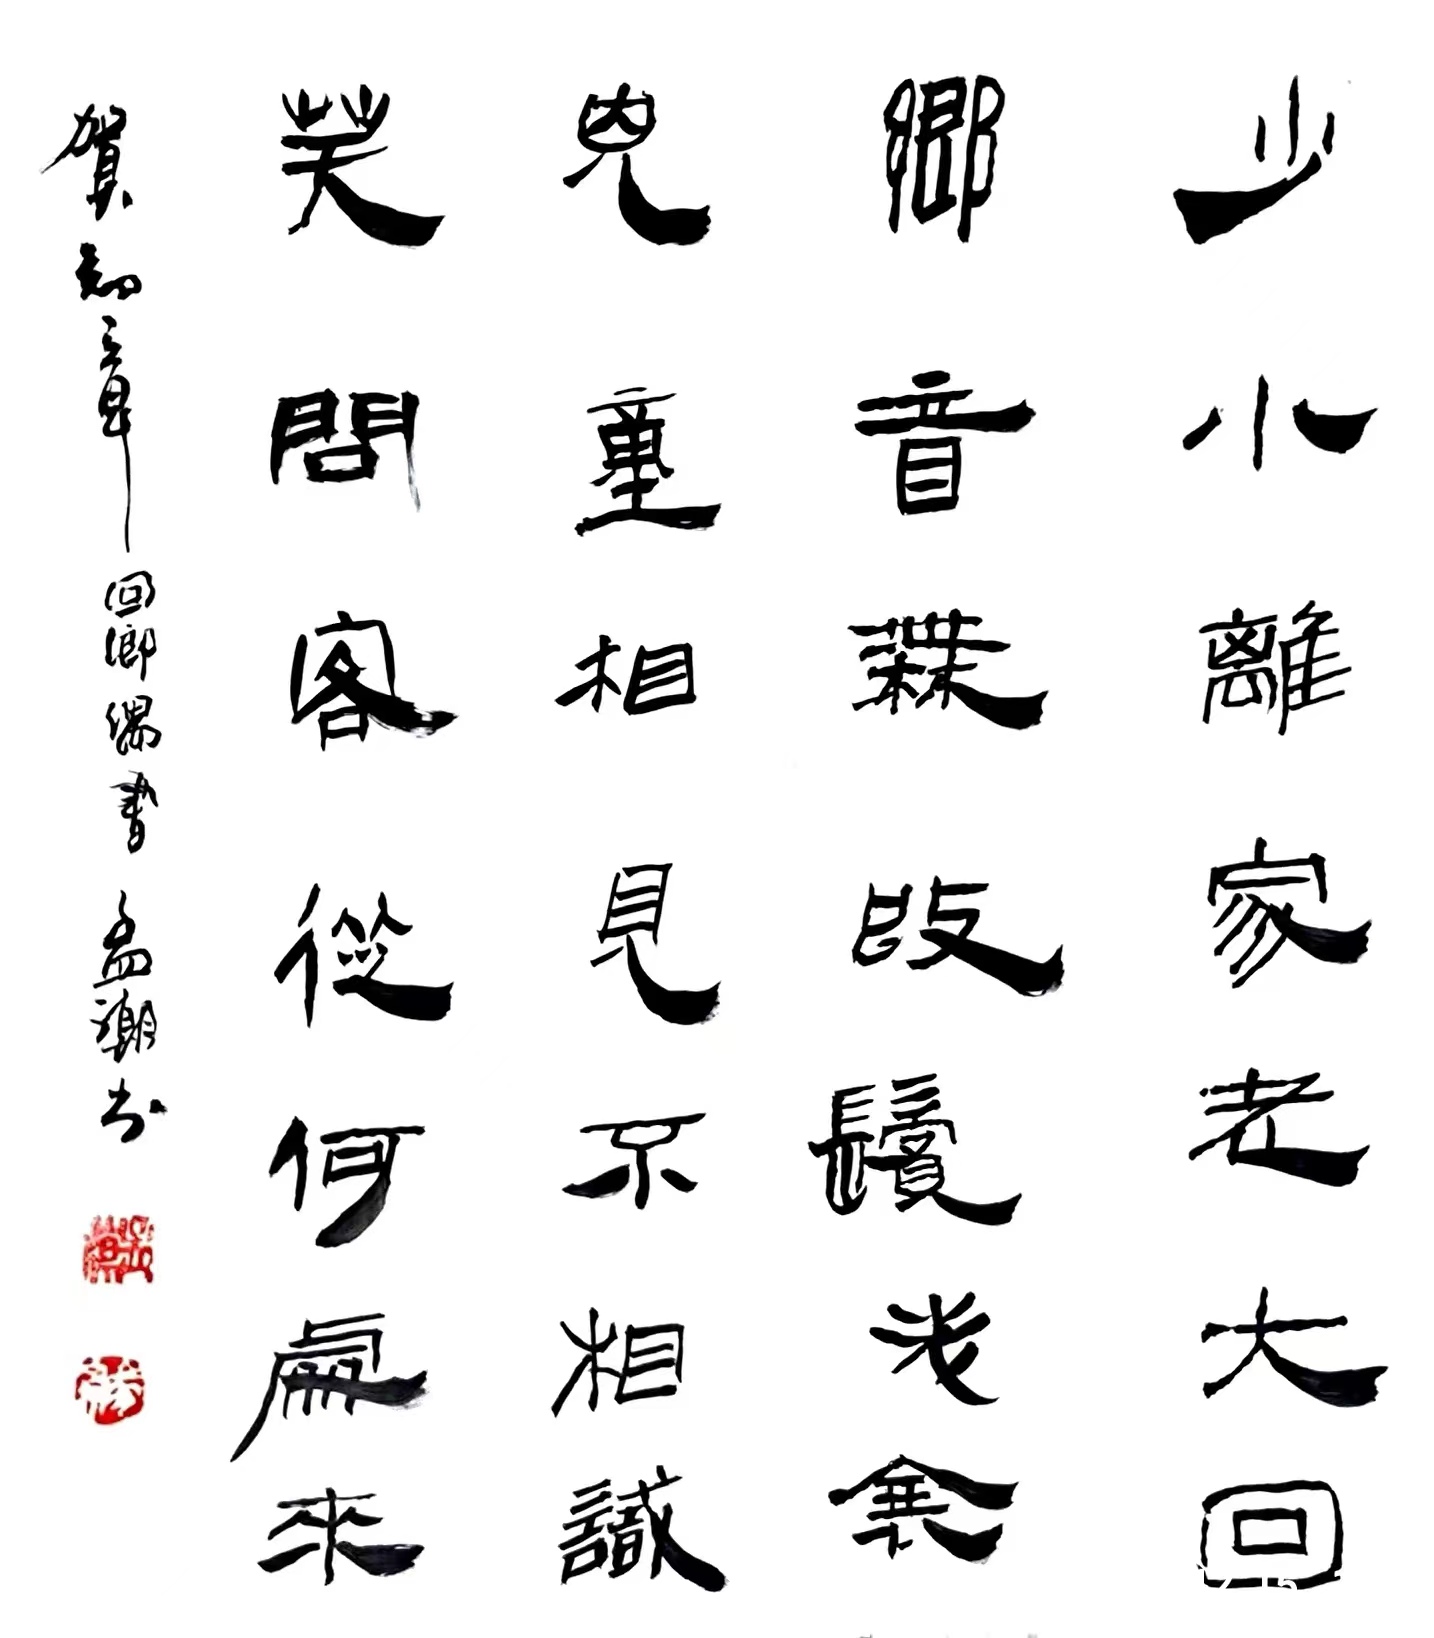 少小離家老大回
鄉音無改鬢毛衰
兒童相見不相識
笑問客從何處來
賀知章回鄉偶書孟潮书